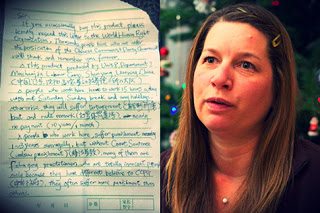 Sir:
If you occasionally buy this product, please
kindly resend this letter to the World Human Right
Organization. Thousands people here who are under
the persecution of the Chinese Communist Party Government
will thank and remember you forever.
This product produced by Unit 8, Department 2,
Masanjia Labour Camp, Shenyang, Liaoning, China
People who work here have to work 15 hours a day
without Saturday, Sunday break and any holidays,
otherwise they will suffer torturement
beat and rude remark nearly
no payment (10 yuan / month)
People who work here, suffer punishment nearly
1~3 years averagely, but without Court Sentence
many of them are
Falun gong practitioner, who are totally innocent people
only because they have different believe to CCPG
They often suffer more punishment than
others.